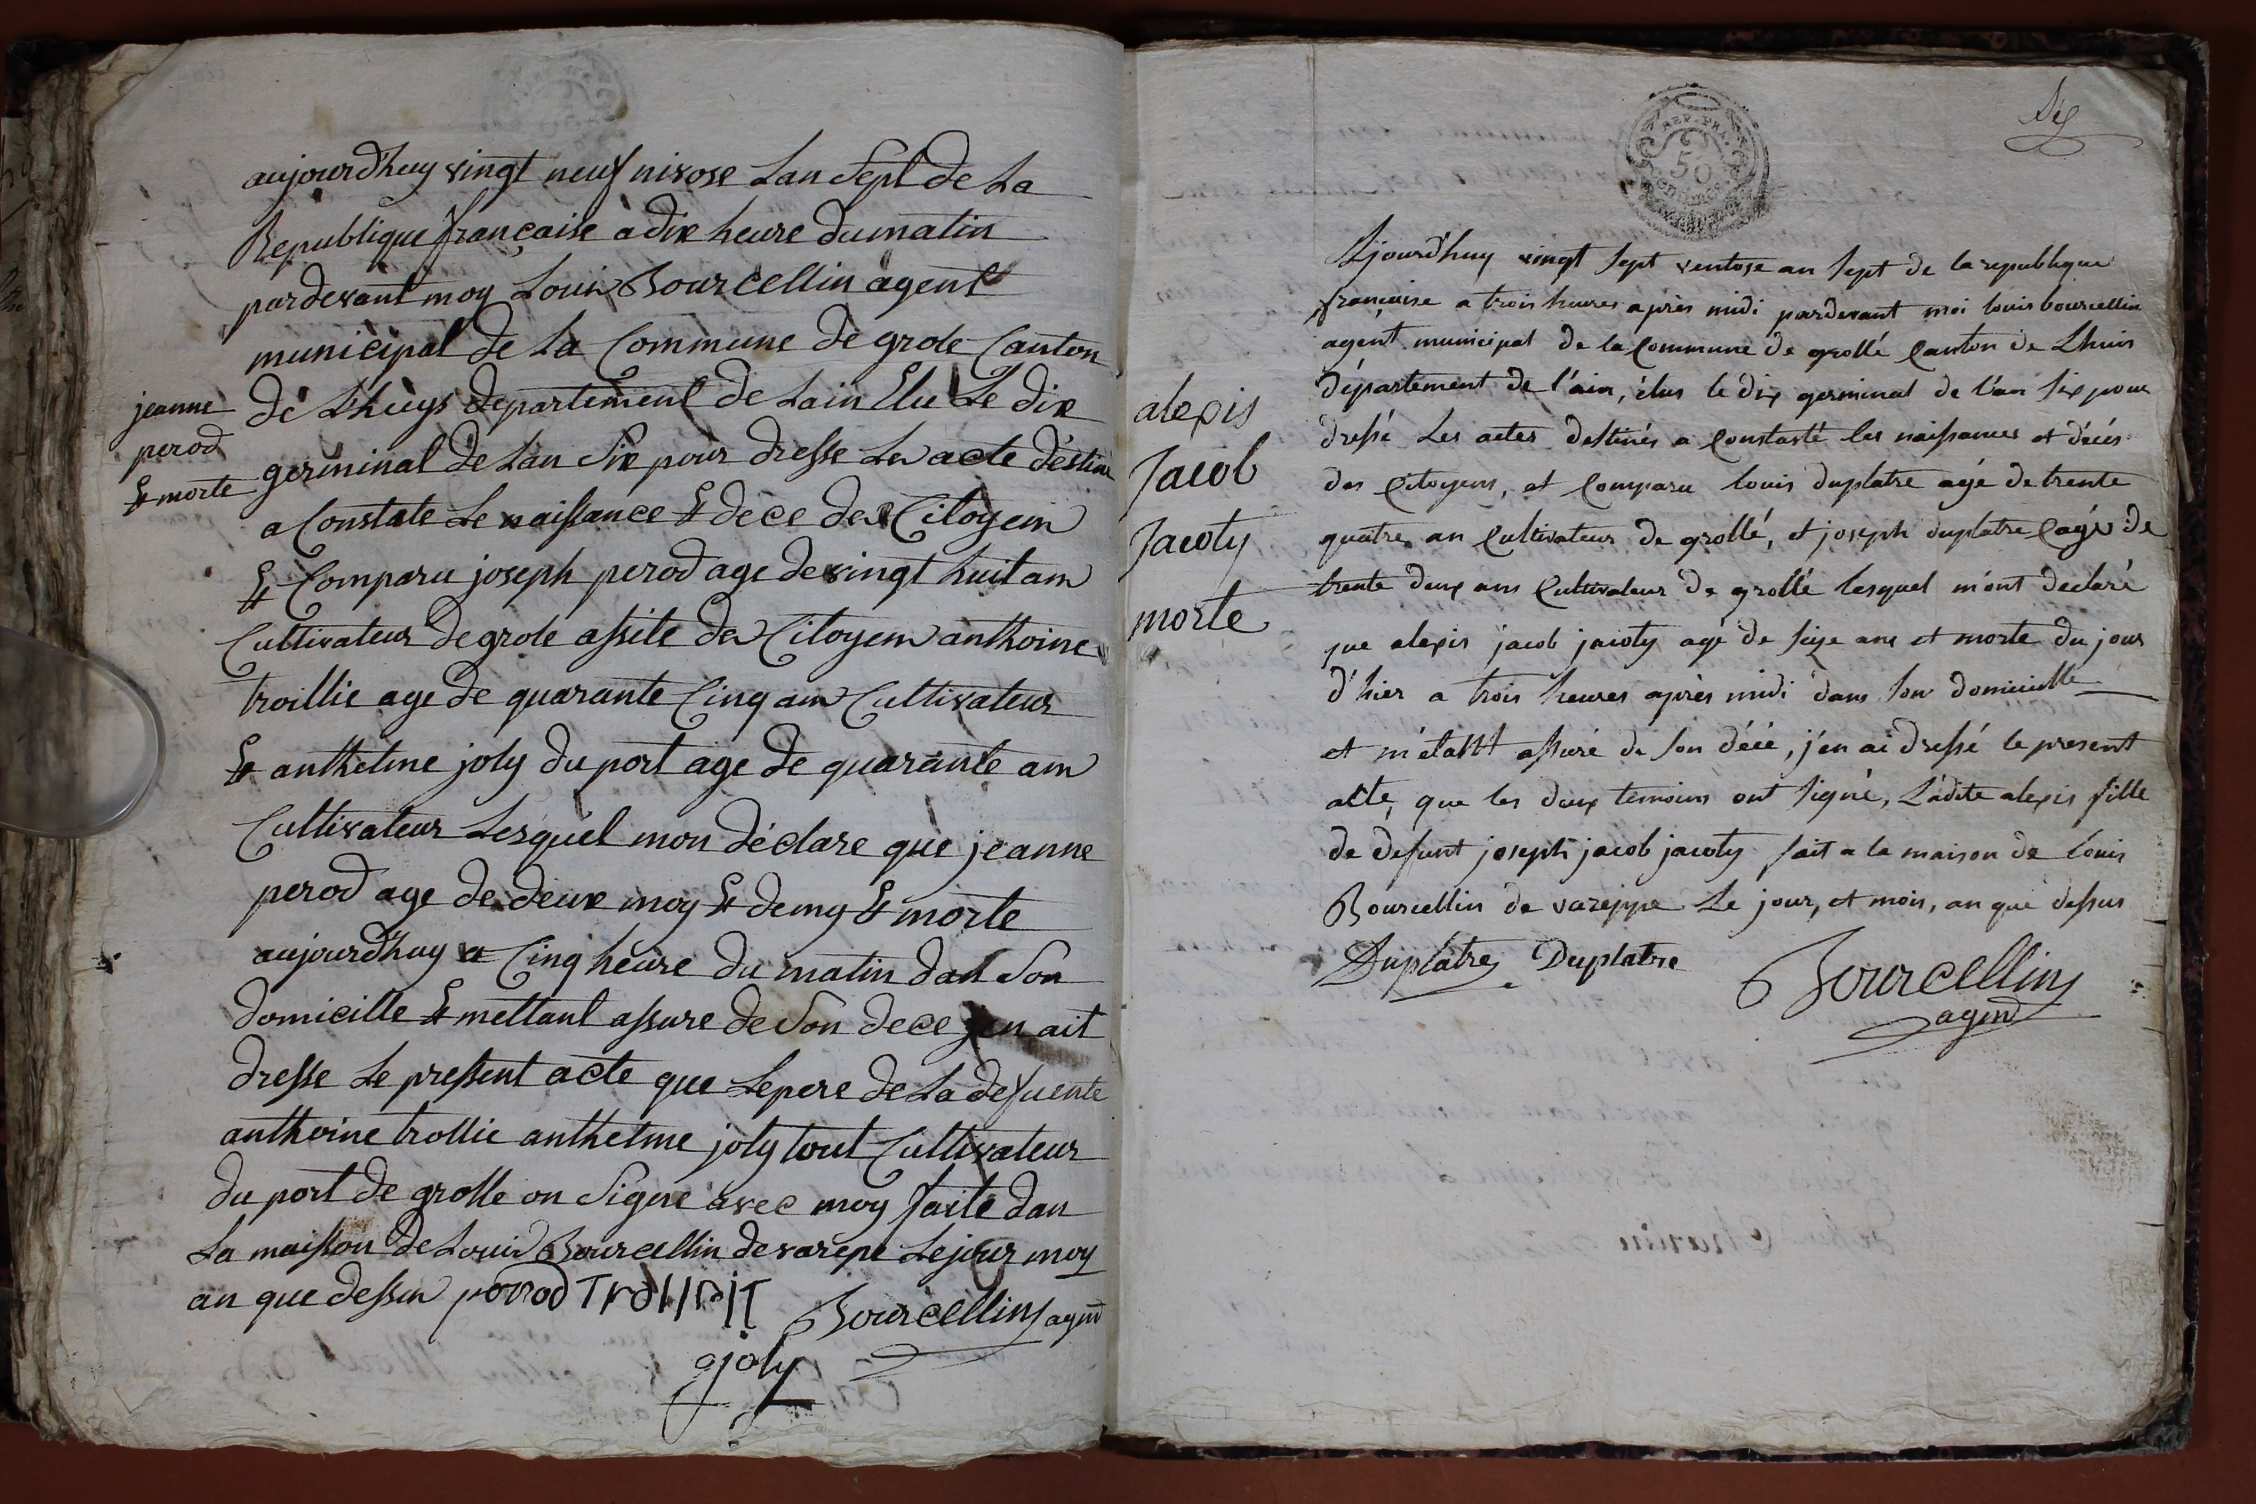 aujourdhuy vingt neuf nivose Lan Sept de La
Republique française a dix heure du matin
pardevant moy Louis Bourcellin agent
municipal de La Commune de grole Canton
de Lhuys departement de Lain Elu Le dix
jeanne
perod
& morte
germinal de Lan Six pour dresse Les acte destine
a Constate Le naissance & dece des Citoyens
& Comparu joseph perod age de vingt huit ans
Cultivateur de grole assite des Citoyens anthoine
troillie age de quarante Cinq ans Cultivateur
& anthelme joly du port age de quarante ans
Cultivateur Lesquel mon déclare que jeanne
perod age de deux moy & demy & morte
aujourdhuy a Cinq heure du matin dans Son
domicille & mettant assure de Son dece jen ait
dresse Le pressent acte que Lepere de La defuente
anthoine trollie anthelme joly tout Cultivateur
du port de grolle on Signe avec moy faite dan
La maisson de Louis Bourcellin de varepe Le jour moy
an que dessus perod Trolliet
Bourcellin agent
ajoly
Six
REP. FRA.
50
centimes
Ajourdhuy vingt sept ventose an sept de la republique
française a trois heures après midi pardevant moi louis bourcellin
agent municipal de la Commune de grollé Canton de Lhuis
département de l'ain, élus le dix germinal de l'an six pour
dressé les actes destinés a Constaté les naissances et décés
des Citoyens, et Comparu louis duplatre agé de trente
quatre an Cultivateur de grollé, et joseph duplatre agé de
trente deux ans Cultivateur de grollé lesquel m'ont declaré
que alexis jacob jacoty agé de seize ans et morte du jour
d'hier a trois heures après midi dans son domicielle
et m'étant assuré de son décé, j'en ai dressé le present
acte, que les deux temoins ont signé, Ladite alexis fille
de defunt joseph jacob jacoty fait a la maison de Louis
Bourcellin de vareppe Le jour, et mois, an que dessus
alexis
Jacob
Jacoty
morte
Duplatre Duplatre
Bourcellin
agent